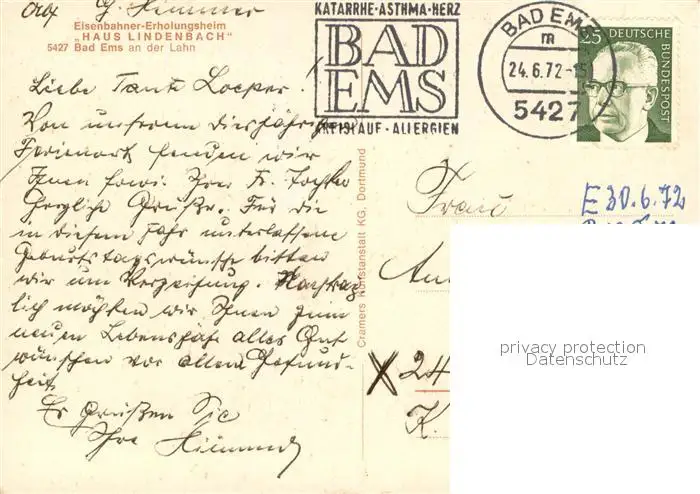 Eisenbahner-Erholungsheim
„HAUS LINDENBACH“
5427 Bad Ems an der Lahn
Liebe Tante
Von unserem diesjährigen
Ferienort senden wir
Ihnen sowie Ihrer Fr. Tochter
herzliche Grüße. Für die
in diesem Jahr unterlassene
Geburtstagswünsche bitten
wir um Verzeihung. Nachträg
lich möchten wir Ihnen zum
neuen Lebensjahr alles Gute
wünschen vor allem Gesund-
heit.
Es grüßen Sie
Ihre
KATARRHE·ASTHMA·HERZ
BAD
EMS
KREISLAUF·ALLERGIEN
BAD EMS
m
24.6.72-15
5427
25 DEUTSCHE
BUNDESPOST
Cramers Kunstanstalt KG, Dortmund
Frau
E 30.6.72
X 24
K.
privacy protection
Datenschutz